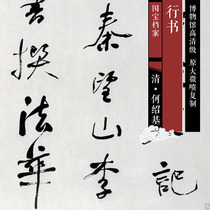 博物馆高清级 原大微喷复制
行书
国宝档案
清·何绍基
記
秦望山李
撰法華